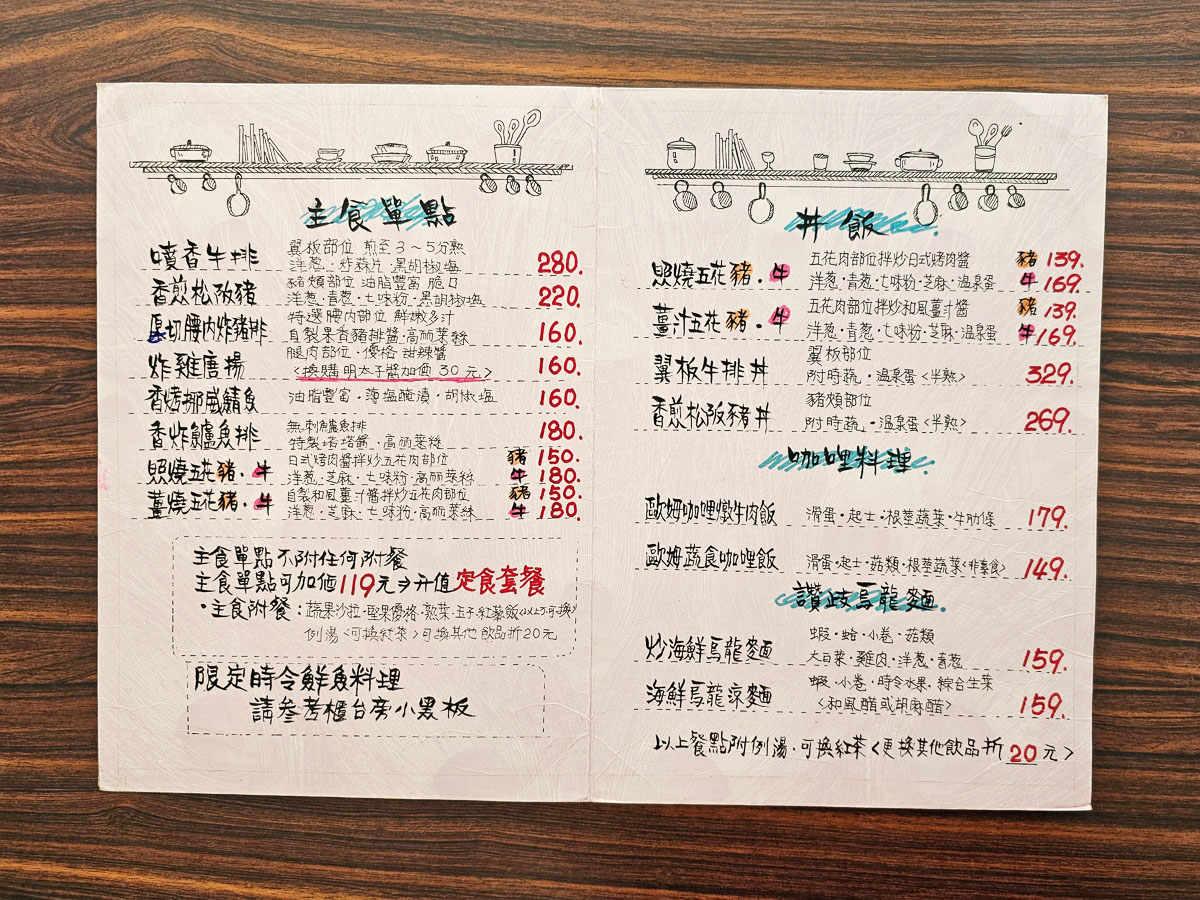 主食單點
噴香牛排 翼板部位 煎至3～5分熟
洋葱·炸蒜片·黑胡椒塩 280.
香煎松阪豬 豬頰部位 油脂豐富 脆口
洋葱·青葱·七味粉·黑胡椒塩 220.
厚切腰內炸豬排 特選腰內部位 鮮嫩多汁
自製果香豬排醬·高麗菜絲 160.
炸雞唐揚 腿肉部位·優格 甜辣醬
<換購明太子醬加価30元> 160.
香烤挪威鯖魚 油脂豐富·薄塩醃漬·胡椒塩 160.
香炸鱸魚排 無刺鱸魚排
特製塔塔醬·高麗菜絲 180.
照燒五花豬·牛 日式烤肉醬拌炒五花肉部位 豬 150.
洋葱·芝麻·七味粉·高麗菜絲 牛 180.
薑燒五花豬·牛 自製和風薑汁醬拌炒五花肉部位 豬 150.
洋葱·芝麻·七味粉·高麗菜絲 牛 180.
主食單點不附任何附餐
主食單點可加価119元→升值定食套餐
·主食附餐：蔬果沙拉·堅果優格·熟菜·玉子·紅藜飯<以上不可換>
例湯<可換紅茶>可換其他飲品折20元
限定時令鮮魚料理
請參考櫃台旁小黑板
丼飯
照燒五花豬·牛 五花肉部位拌炒日式烤肉醬 豬 139.
洋葱·青葱·七味粉·芝麻·溫泉蛋 牛 169.
薑汁五花豬·牛 五花肉部位拌炒和風薑汁醬 豬 139.
洋葱·青葱·七味粉·芝麻·溫泉蛋 牛 169.
翼板牛排丼 翼板部位
附時蔬·溫泉蛋<半熟> 329.
香煎松阪豬丼 豬頰部位
附時蔬·溫泉蛋<半熟> 269.
咖哩料理
歐姆咖哩燉牛肉飯 滑蛋·起士·根莖蔬菜·牛肋條 179.
歐姆蔬食咖哩飯 滑蛋·起士·菇類·根莖蔬菜<非素食> 149.
讚歧烏龍麵
炒海鮮烏龍麵 蝦·蛤·小卷·菇類
大白菜·雞肉·洋葱·青葱 159.
海鮮烏龍涼麵 蝦·小卷·時令水果·綜合生菜
<和風醋或胡麻醋> 159.
以上餐點附例湯·可換紅茶<更換其他飲品折20元>